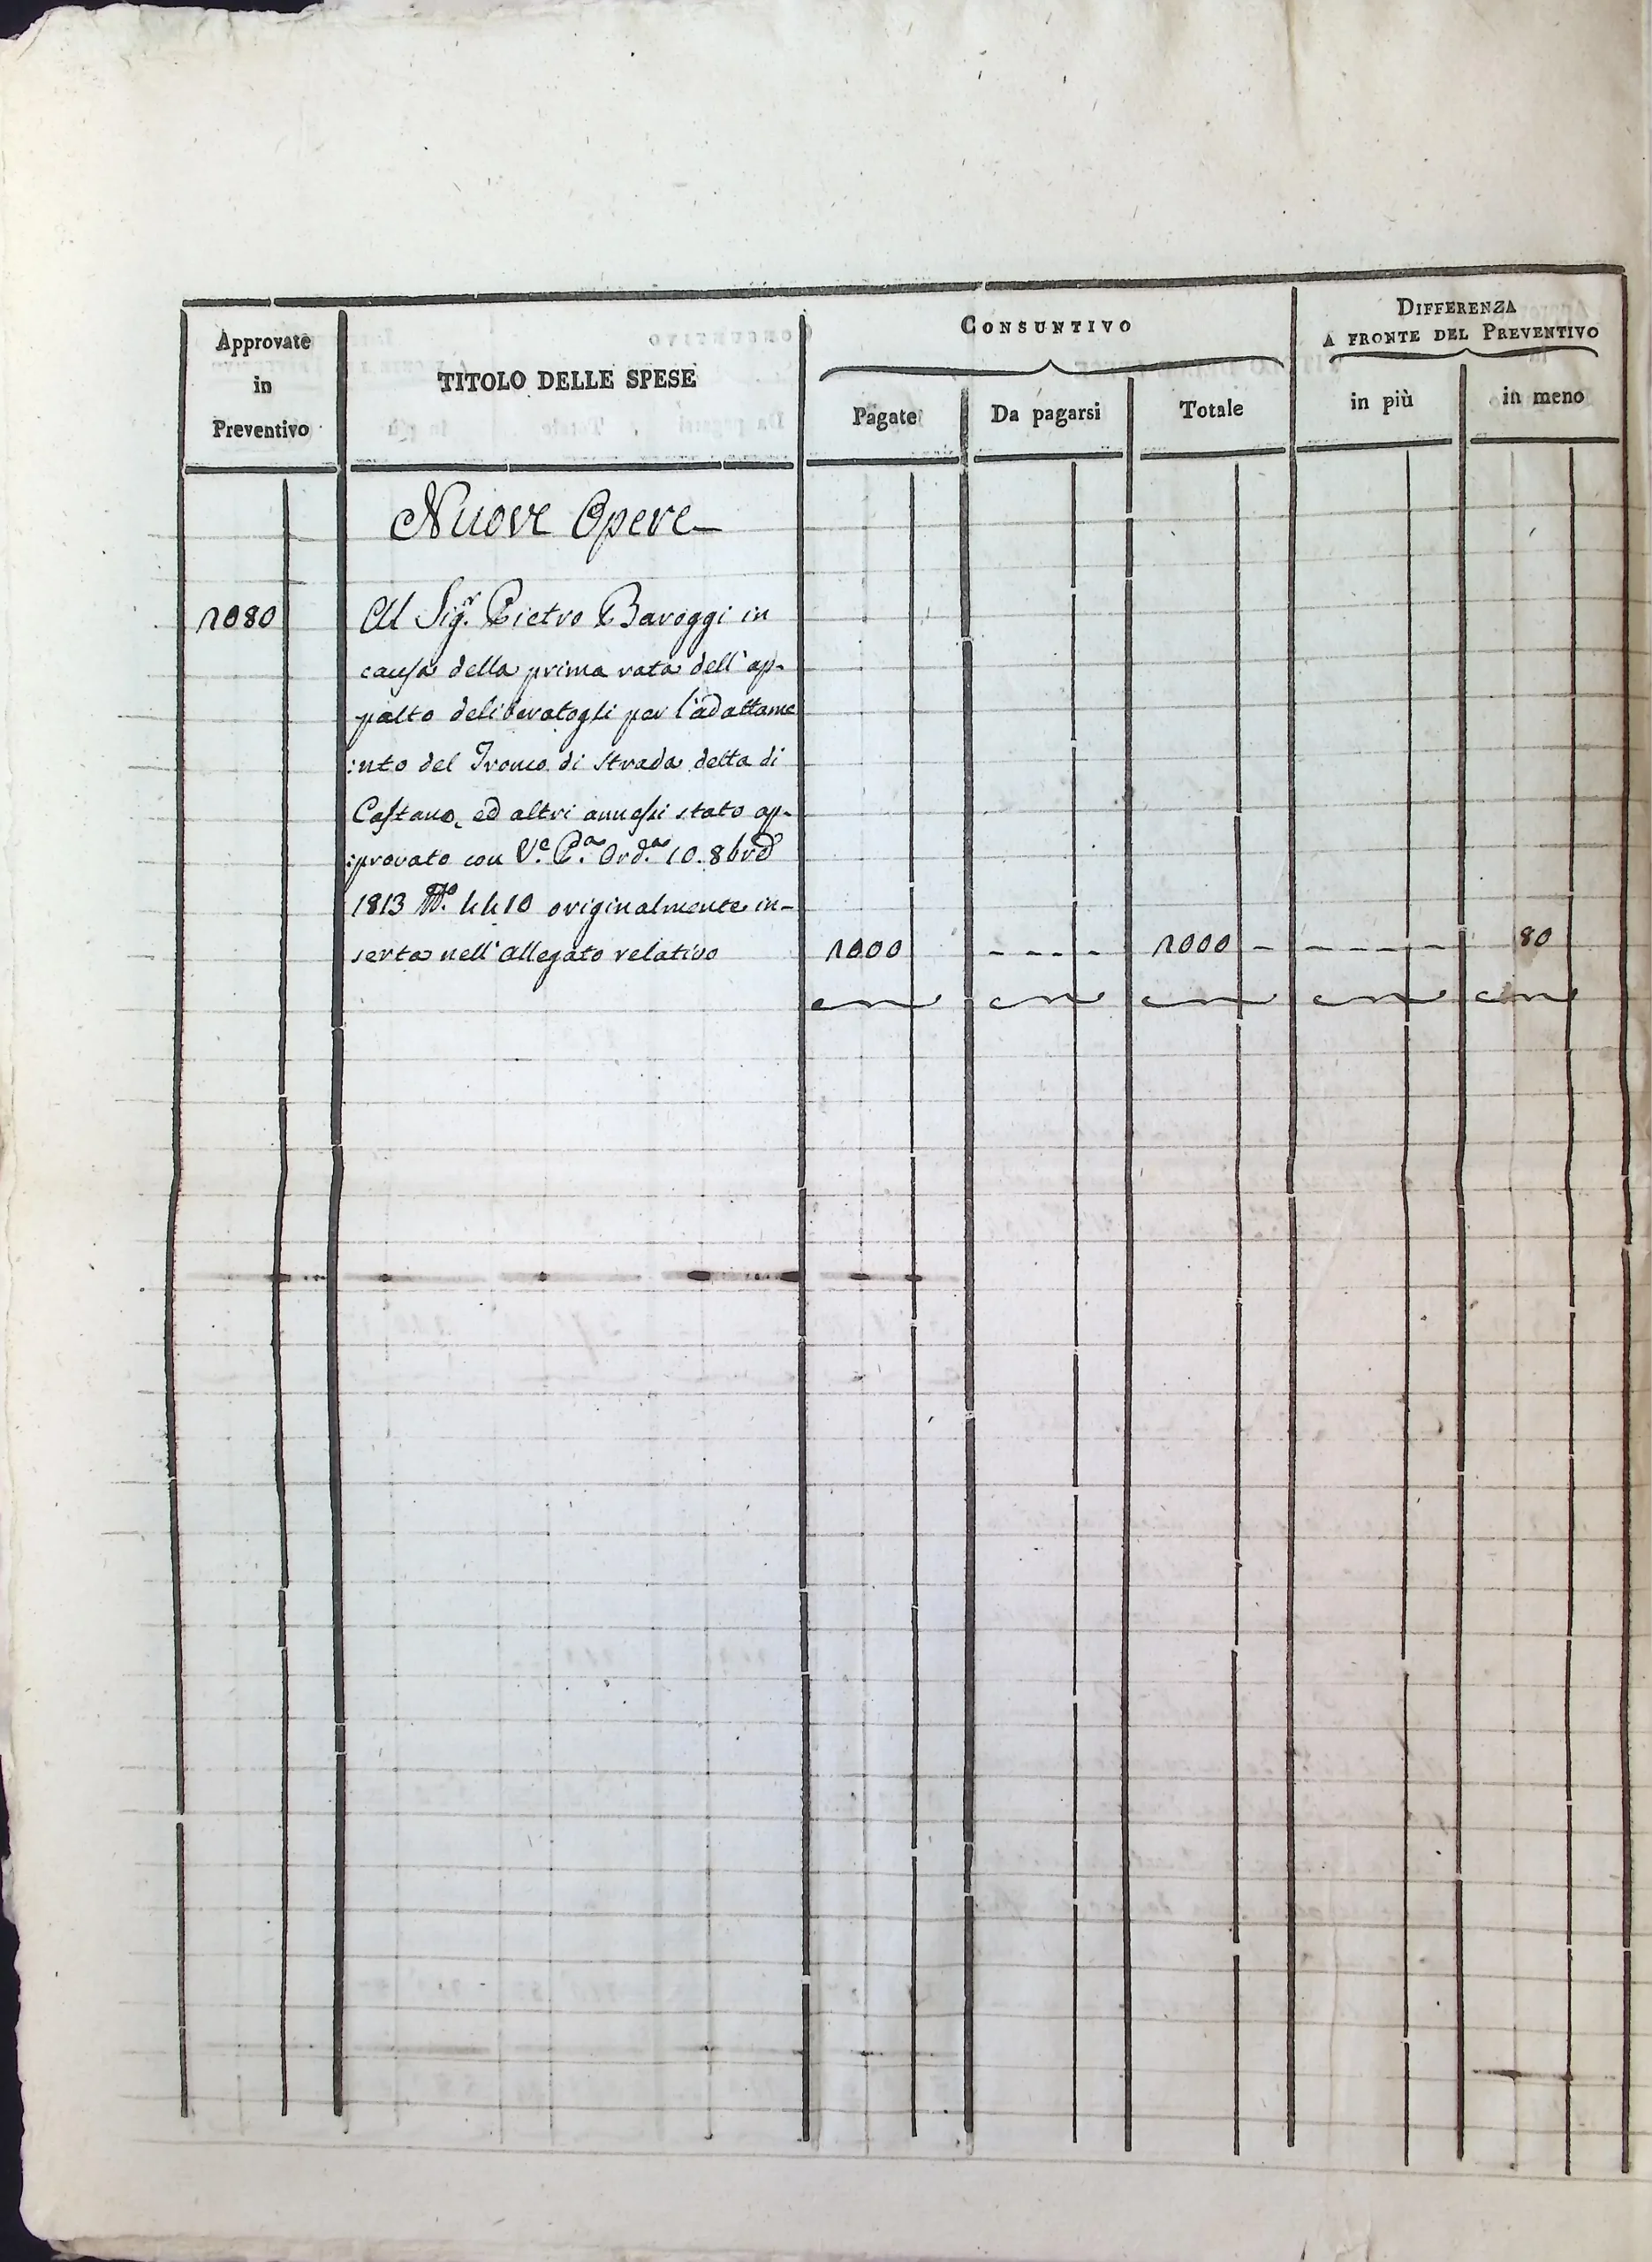 Approvate
in
Preventivo
TITOLO DELLE SPESE
CONSUNTIVO
Pagate
Da pagarsi
Totale
DIFFERENZA
A FRONTE DEL PREVENTIVO
in più
in meno
Nuove Opere
1080 Al Sig.r Pietro Baroggi in
causa della prima rata dell'ap-
palto deliberatogli per l'adattame
:nto del Tronco di Strada detta di
Castano, ed altri annessi stato ap-
:provato con V.e P.a Ord.a 10. 8bre
1813 4410 originalmente in-
serta nell'allegato relativo 1000 - - - - 1000 - - - - - - 80